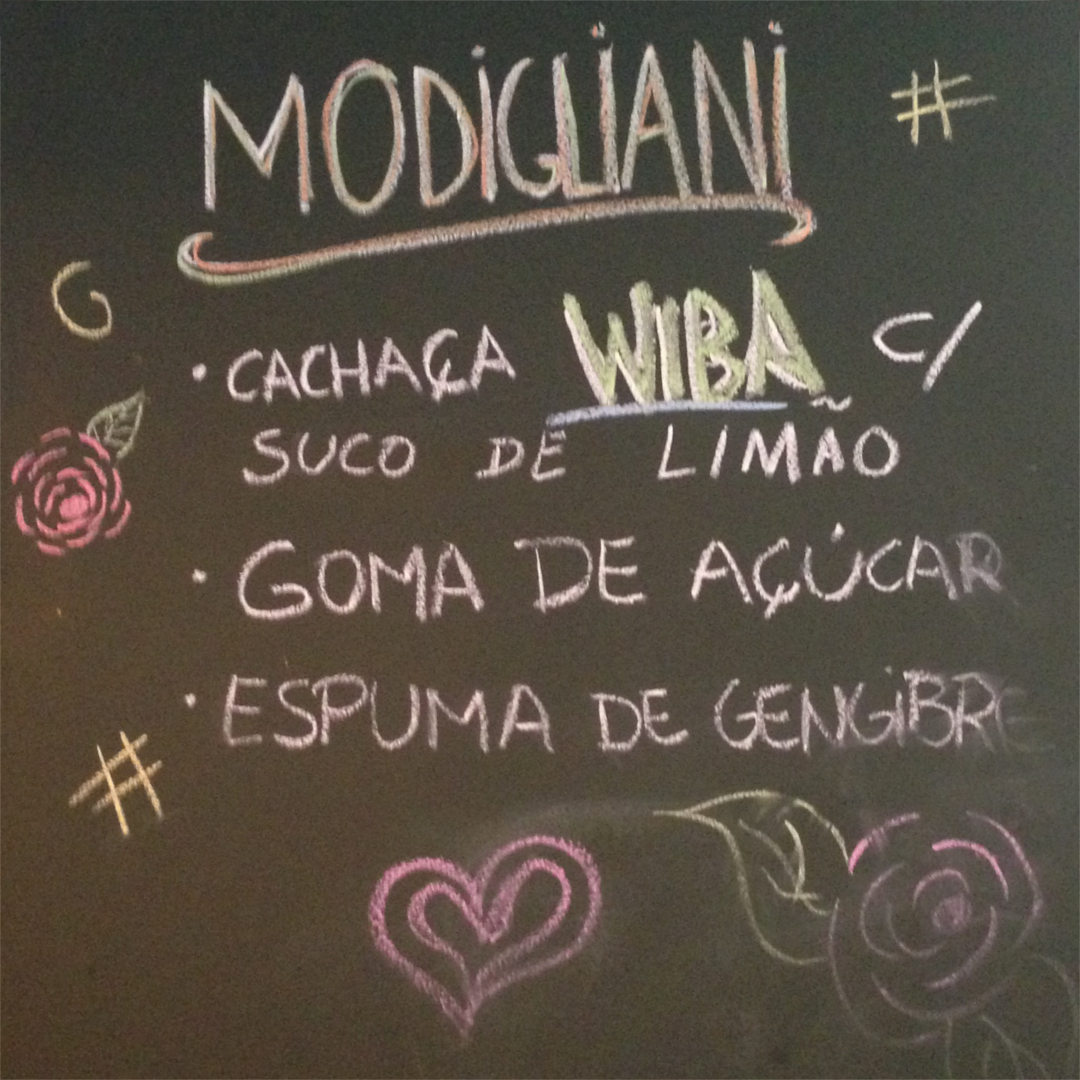 MODiGLiANi
#
G
• CACHAÇA WIBA C/
SUCO DE LIMÃO
• GOMA DE AÇÚCAR
• ESPUMA DE GENGiBRE
#